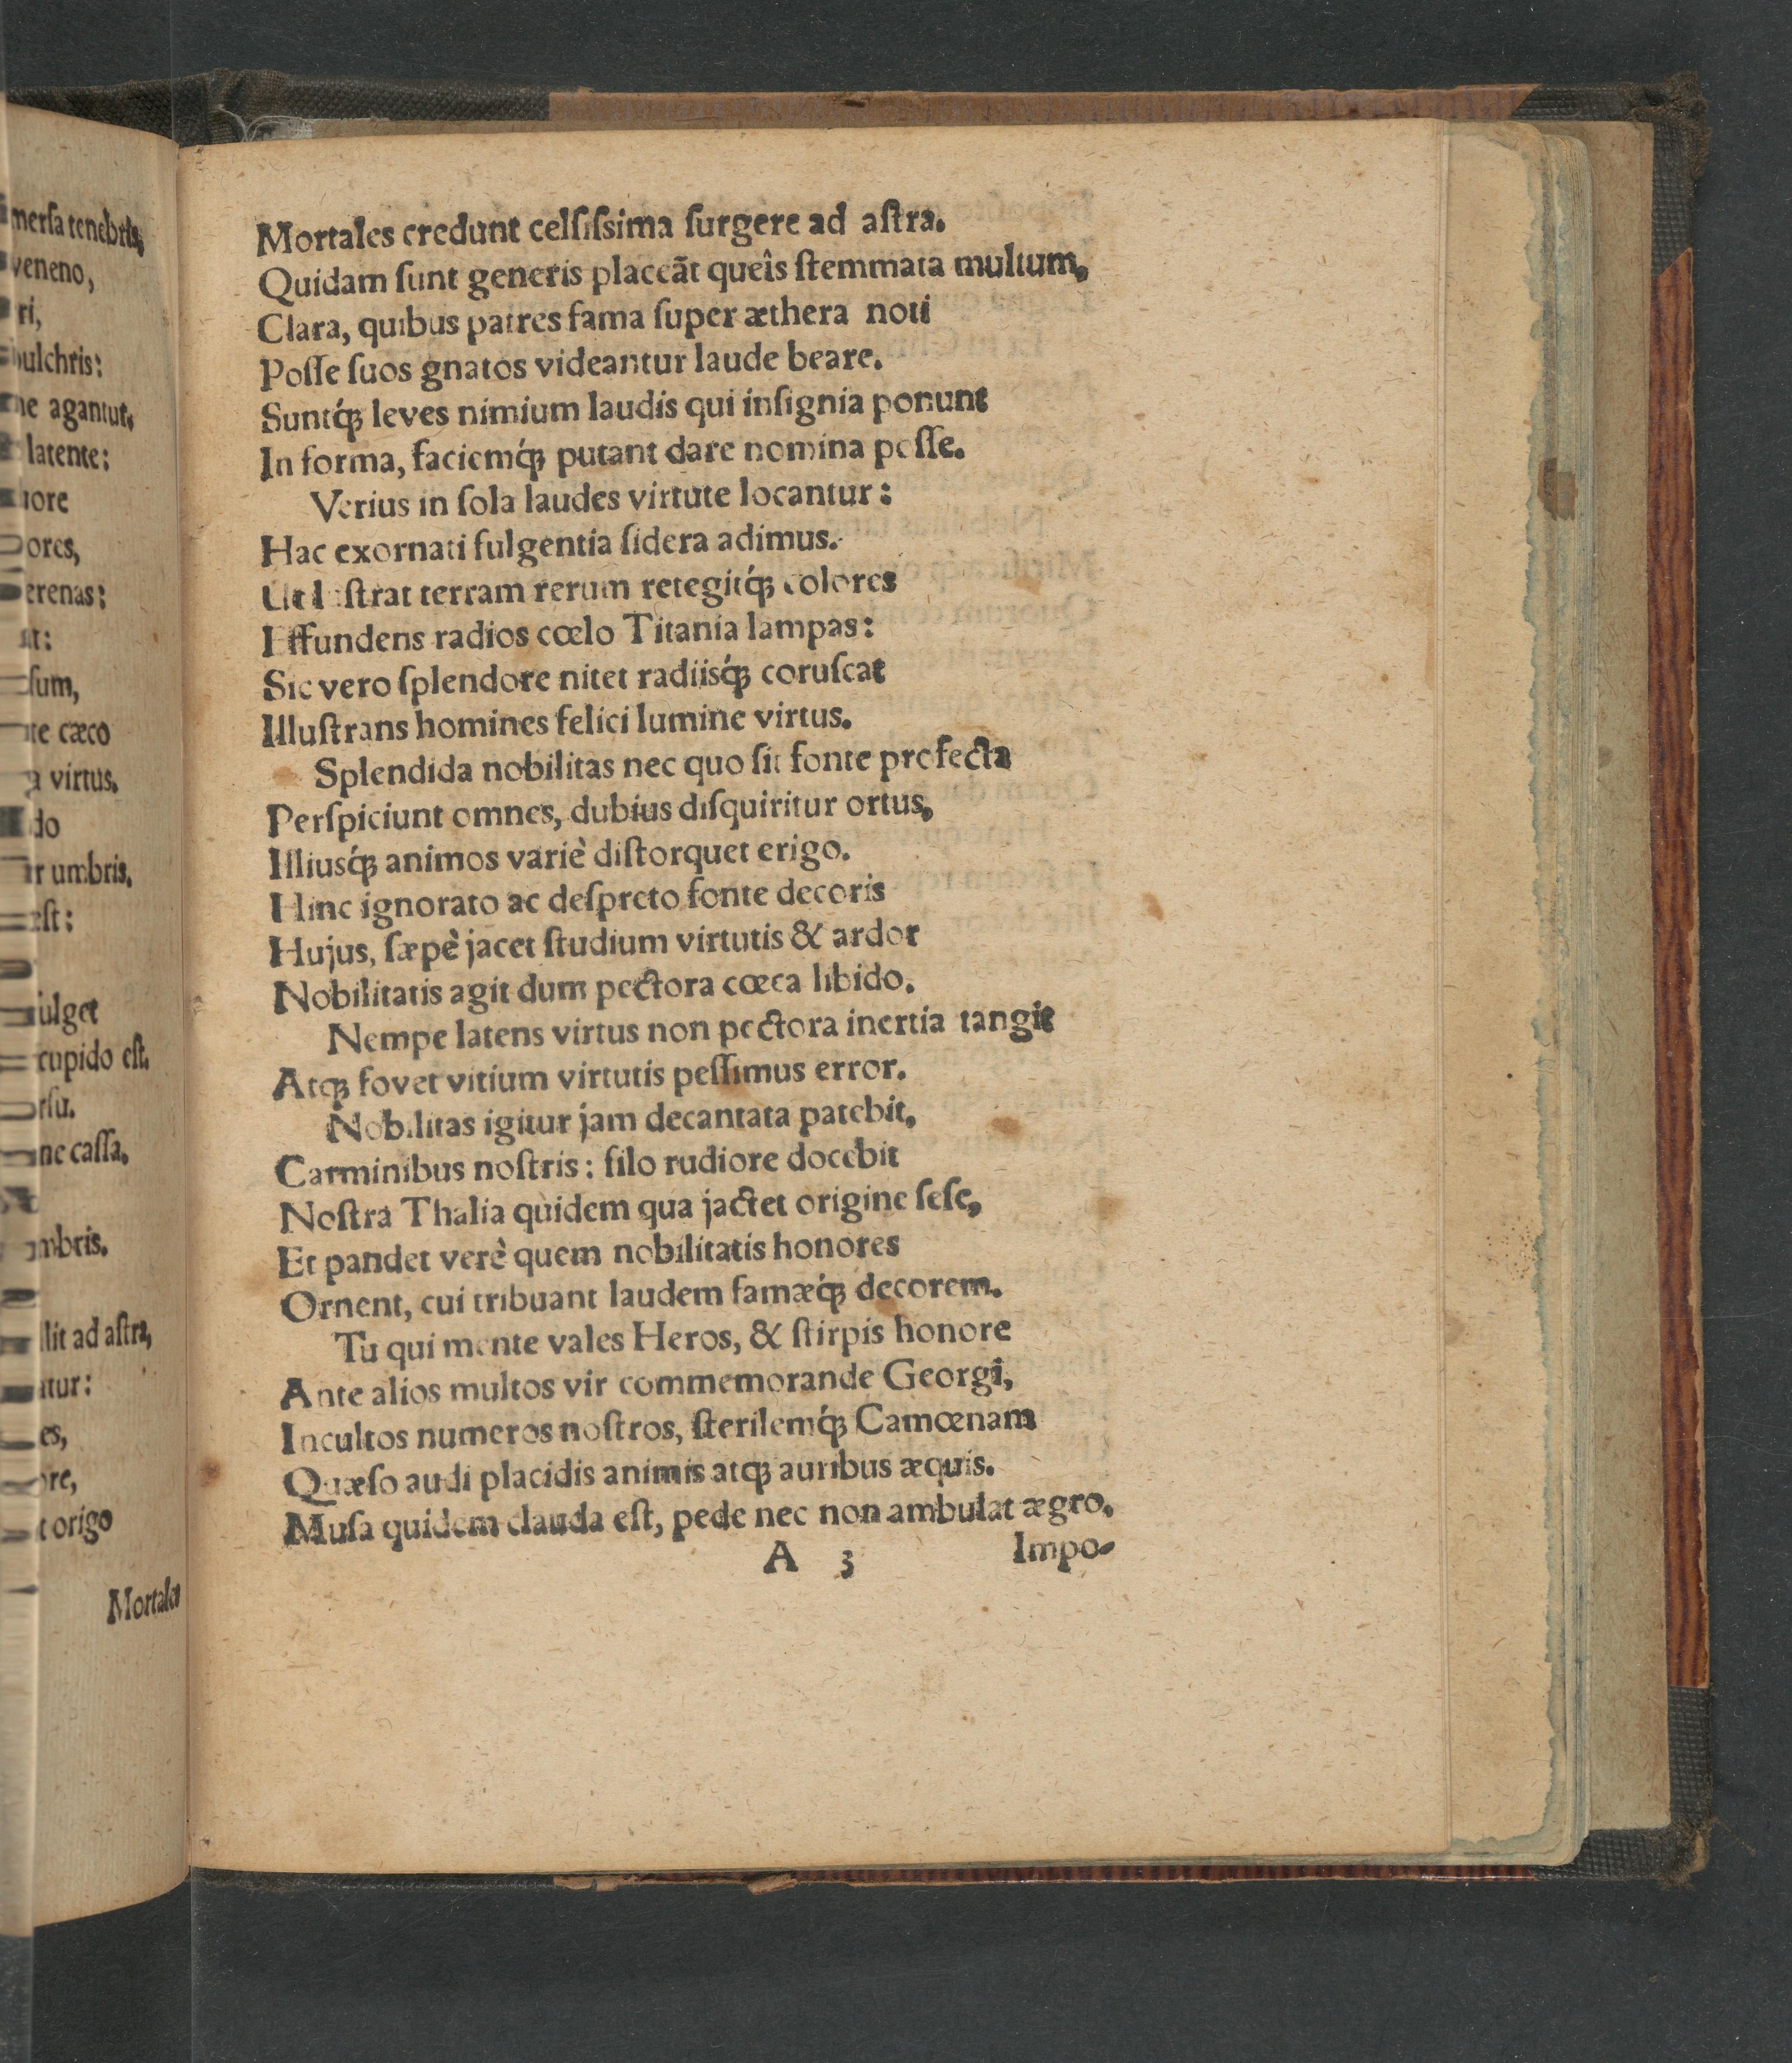 mersa tenebris,
veneno,
ri,
pulchris:
ne agantur.
latente:
iore
ores,
erenas:
at:
sum,
te cæco
a virtus.
do
r umbris.
est:
ulget
cupido eſt.
rſu.
ne caſſa.
mbris.
llit ad aſtra,
itur:
es,
ore,
t origo
Mortales
Mortales credunt celſiſsima ſurgere ad aſtra.
Quidam ſunt generis placeãt queîs ſtemmata multum,
Clara, quibus patres fama ſuper æthera noti
Poſſe ſuos gnatos videantur laude beare.
Suntq́ꝫ leves nimium laudis qui inſignia ponunt
In forma, faciemq́ꝫ putant dare nomina poſſe.
Verius in ſola laudes virtute locantur:
Hac exornati fulgentia ſidera adimus.
Ut luſtrat terram rerum retegitq́ꝫ colores
Effundens radios cœlo Titania lampas:
Sic vero ſplendore nitet radiisq́ꝫ coruſcat
Illuſtrans homines felici lumine virtus.
Splendida nobilitas nec quo ſit fonte profecta
Perſpiciunt omnes, dubius diſquiritur ortus,
Illiusq́ꝫ animos variè diſtorquet erigo.
Hinc ignorato ac deſpreto fonte decoris
Hujus, ſæpè jacet ſtudium virtutis & ardor
Nobilitatis agit dum pectora cœca libido.
Nempe latens virtus non pectora inertia tangit
Atqꝫ fovet vitium virtutis peſſimus error.
Nobilitas igitur jam decantata patebit,
Carminibus noſtris: filo rudiore docebit
Noſtra Thalia quidem qua jactet origine ſeſe,
Et pandet verè quem nobilitatis honores
Ornent, cui tribuant laudem famæq́ꝫ decorem.
Tu qui mente vales Heros, & ſtirpis honore
Ante alios multos vir commemorande Georgi,
Incultos numeros noſtros, ſterilemq́ꝫ Camœnam
Quæſo audi placidis animis atqꝫ auribus æquis.
Muſa quidem clauda eſt, pede nec non ambulat ægro.
A 3 Impo-